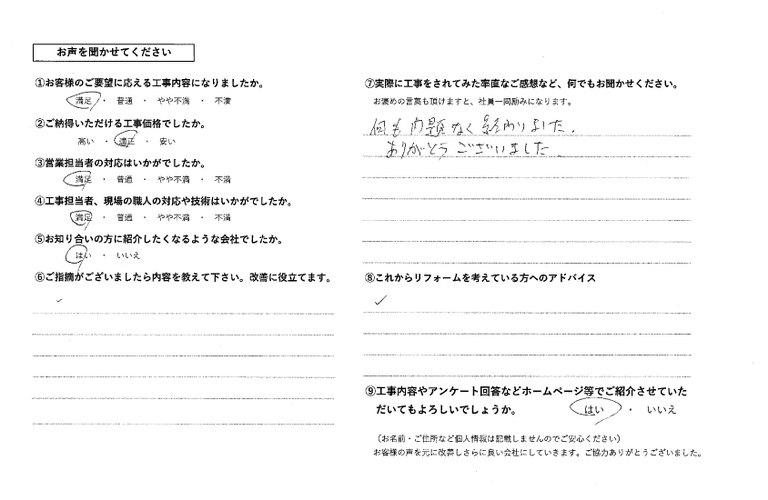 お声を聞かせてください
①お客様のご要望に応える工事内容になりましたか。
満足 ・ 普通 ・ やや不満 ・ 不満
②ご納得いただける工事価格でしたか。
高い ・ 適正 ・ 安い
③営業担当者の対応はいかがでしたか。
満足 ・ 普通 ・ やや不満 ・ 不満
④工事担当者、現場の職人の対応や技術はいかがでしたか。
満足 ・ 普通 ・ やや不満 ・ 不満
⑤お知り合いの方に紹介したくなるような会社でしたか。
はい ・ いいえ
⑥ご指摘がございましたら内容を教えて下さい。改善に役立てます。
⑦実際に工事をされてみた率直なご感想など、何でもお聞かせください。
お褒めの言葉も頂けますと、社員一同励みになります。
何も問題なく終わりました。
ありがとうございました
⑧これからリフォームを考えている方へのアドバイス
⑨工事内容やアンケート回答などホームページ等でご紹介させていた
だいてもよろしいでしょうか。 はい ・ いいえ
（お名前・ご住所など個人情報は記載しませんのでご安心ください）
お客様の声を元に改善しさらに良い会社にしていきます。ご協力ありがとうございました。